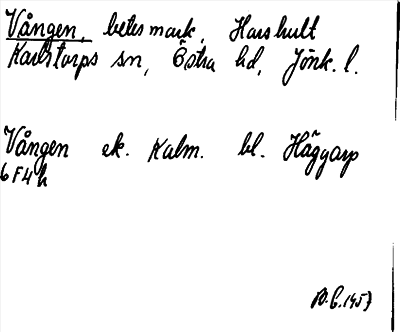 Vången, betesmark, Harshult
Karlstorps sn, Östra hd, Jönk. l.
Vången ek. Kalm. bl. Häggarp
6F4h
B.G. 1957